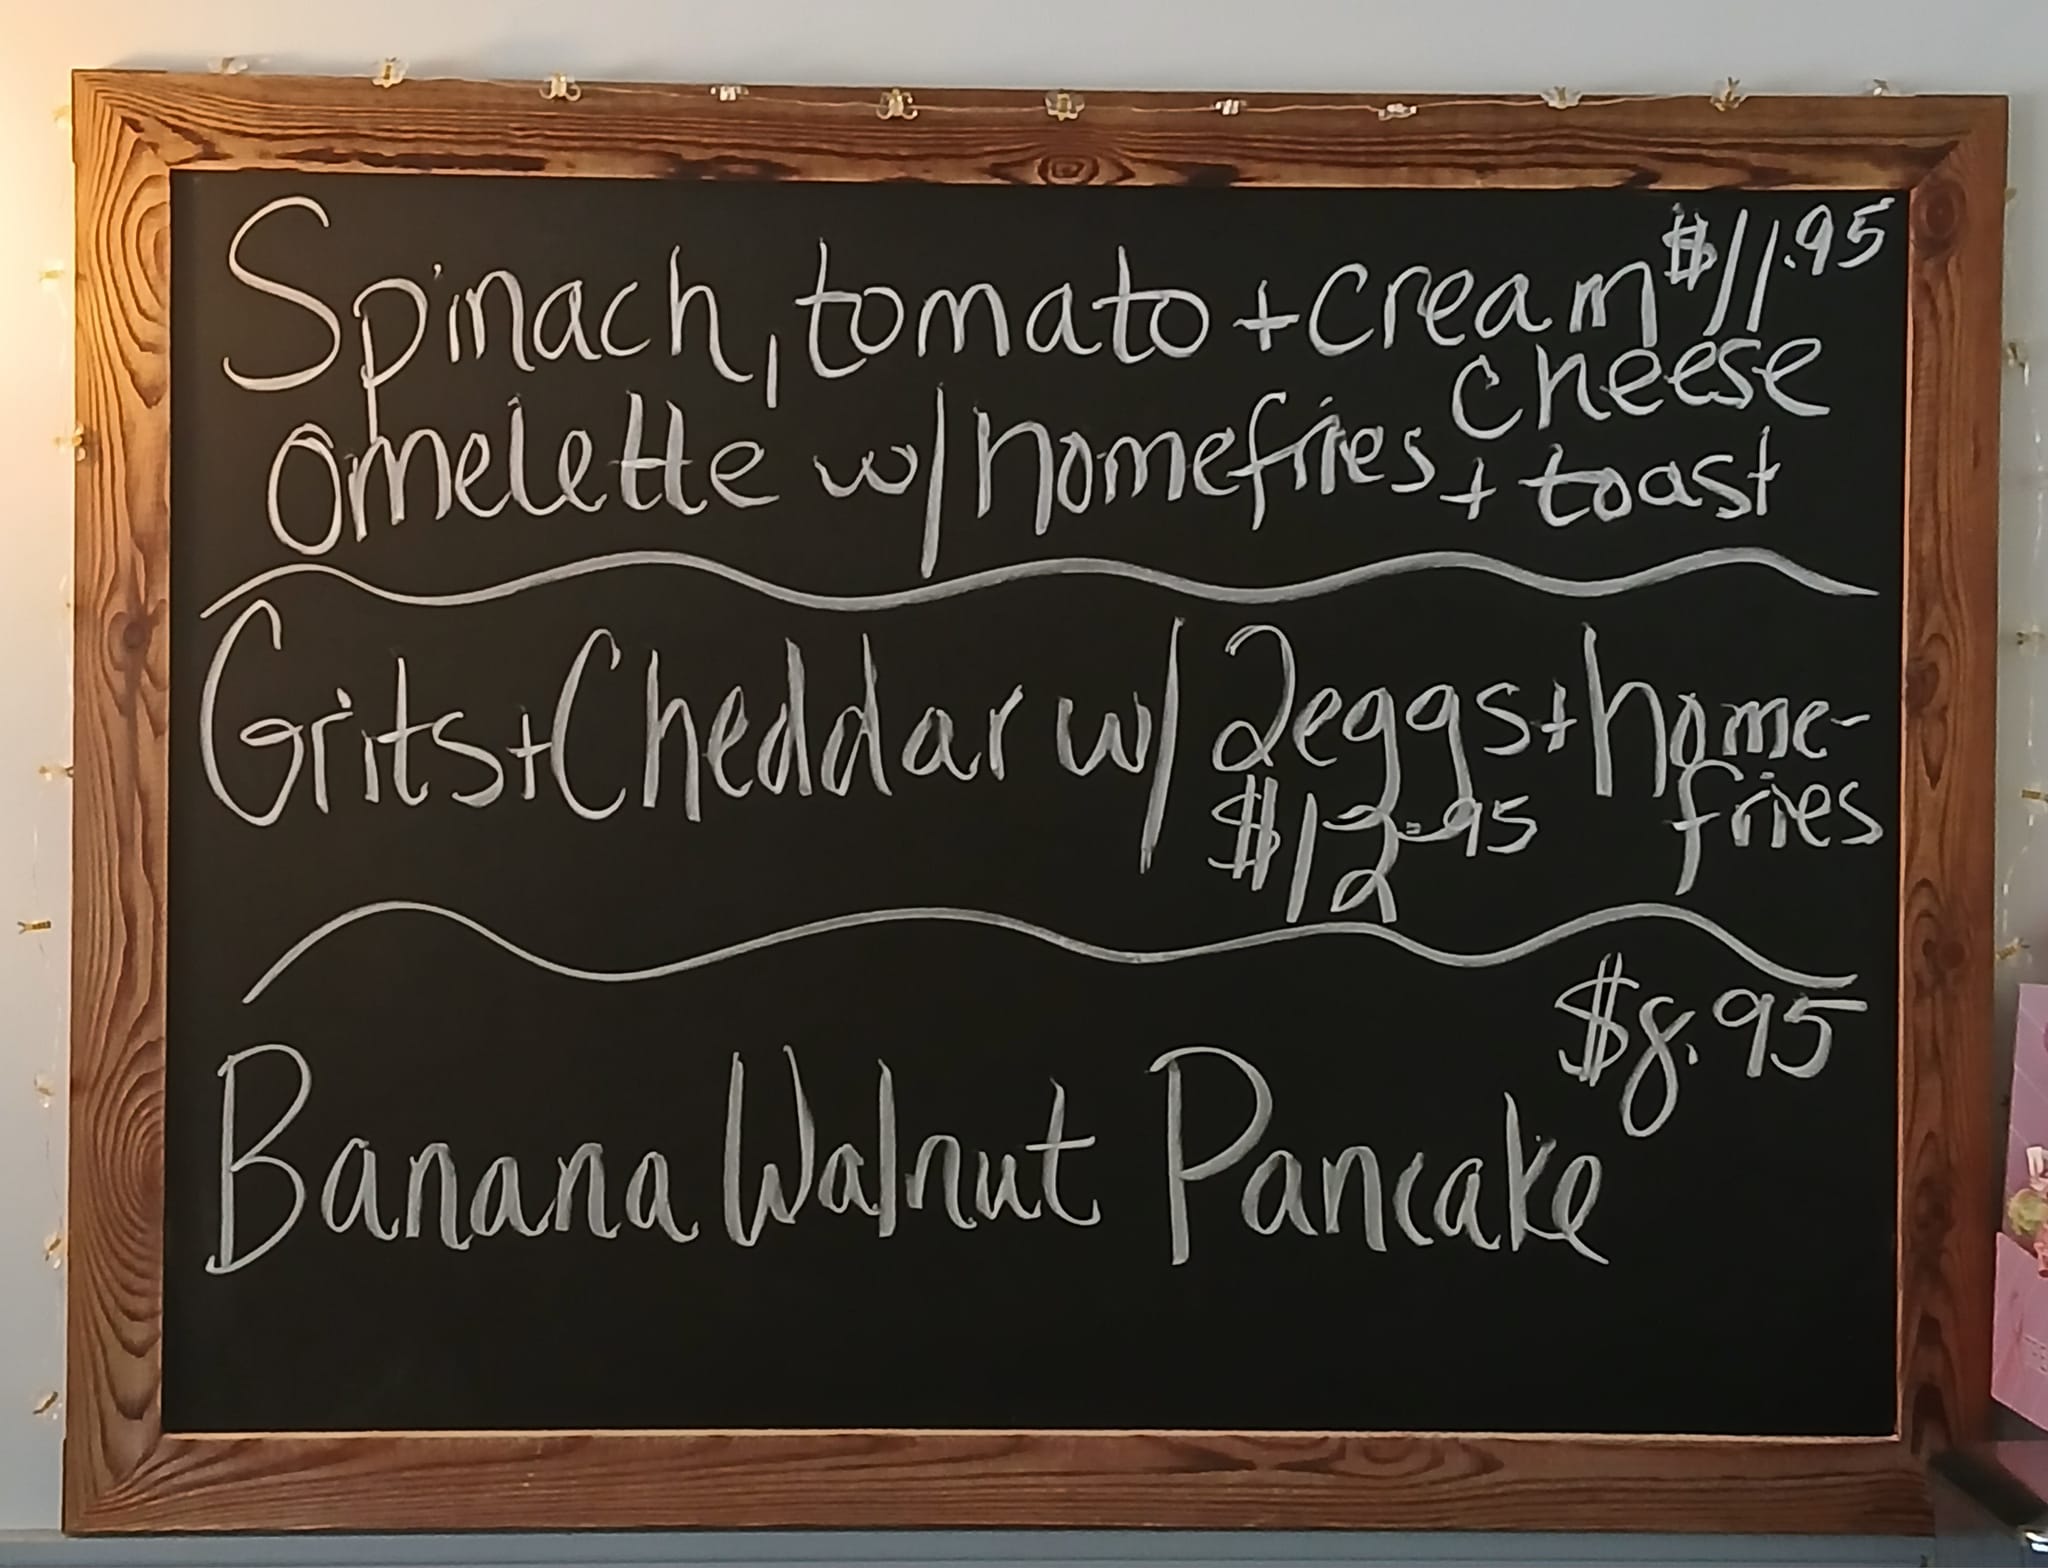 Spinach, tomato + cream $11.95
cheese
omelette w/ homefries + toast
Grits + Cheddar w/ 2 eggs + home-
fries
$12.95
$8.95
Banana Walnut Pancake